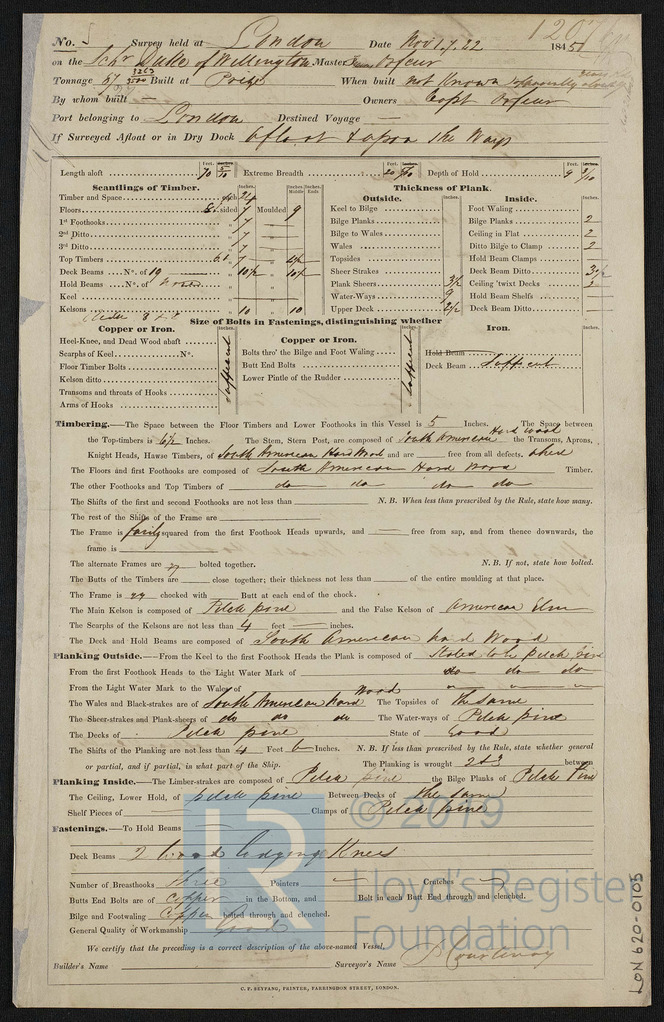 1207
No. 5 Survey held at London Date Nov 1. 7. 22 1845
on the Schr Duke of Wellington Master Orfeur
Tonnage 67 3263/3500 Built at Prize When built not Known
By whom built — Owners Capt Orfeur
Port belonging to London Destined Voyage —
If Surveyed Afloat or in Dry Dock afloat & upon the Ways
Length aloft 70 /10 Extreme Breadth 20 /10 Depth of Hold 9 /10
Scantlings of Timber.
Timber and Space
Floors sided 7 Moulded 9
1st Foothooks 7
2nd Ditto 7
3rd Ditto 7
Top Timbers 7
Deck Beams No. of 19 10½ 10½
Hold Beams No. of
Keel
Kelsons 10 10
Thickness of Plank.
Outside.
Keel to Bilge
Bilge Planks
Bilge to Wales
Wales
Topsides
Sheer Strakes
Plank Sheers 3½
Water-Ways 9
Upper Deck 2½
Inside.
Foot Waling
Bilge Planks 2
Ceiling in Flat 2
Ditto Bilge to Clamp 2
Hold Beam Clamps
Deck Beam Ditto
Ceiling 'twixt Decks 2
Hold Beam Shelfs
Deck Beam Ditto
Size of Bolts in Fastenings, distinguishing whether
Copper or Iron.
Heel-Knee, and Dead Wood abaft
Scarphs of Keel No.
Floor Timber Bolts
Kelson ditto
Transoms and throats of Hooks
Arms of Hooks
Sufficient
Copper or Iron.
Bolts thro' the Bilge and Foot Waling
Butt End Bolts
Lower Pintle of the Rudder
Sufficient
Iron.
Hold Beam
Deck Beam Sufficient
Timbering.—The Space between the Floor Timbers and Lower Foothooks in this Vessel is 5 Inches. The Space between
the Top-timbers is 6½ Inches. The Stem, Stern Post, are composed of South American Hard wood the Transoms, Aprons,
Knight Heads, Hawse Timbers, of South American Hard Wood and are — free from all defects,
The Floors and first Foothooks are composed of South American Hard Wood Timber.
The other Foothooks and Top Timbers of do do do do
The Shifts of the first and second Foothooks are not less than N.B. When less than prescribed by the Rule, state how many.
The rest of the Shifts of the Frame are
The Frame is fairly squared from the first Foothook Heads upwards, and — free from sap, and from thence downwards, the
frame is
The alternate Frames are bolted together. N.B. If not, state how bolted.
The Butts of the Timbers are — close together; their thickness not less than — of the entire moulding at that place.
The Frame is chocked with — Butt at each end of the chock.
The Main Kelson is composed of Pitch pine and the False Kelson of American Elm
The Scarphs of the Kelsons are not less than 4 feet — inches.
The Deck and Hold Beams are composed of South American hard Wood
Planking Outside.—From the Keel to the first Foothook Heads the Plank is composed of Stated to be Pitch Pine
From the first Foothook Heads to the Light Water Mark of do do do
From the Light Water Mark to the Wales of
The Wales and Black-strakes are of South American hard Wood The Topsides of the same
The Sheer-strakes and Plank-sheers of do do do The Water-ways of Pitch pine
The Decks of Pitch pine State of Good
The Shifts of the Planking are not less than 4 Feet 6 Inches. N.B. If less than prescribed by the Rule, state whether general
or partial, and if partial, in what part of the Ship. The Planking is wrought 2 & 3 between
Planking Inside.—The Limber-strakes are composed of Pitch pine the Bilge Planks of Pitch Pine
The Ceiling, Lower Hold, of pitch pine Between Decks of the same
Shelf Pieces of Clamps of Pitch pine
Fastenings.—To Hold Beams
Deck Beams 2 Wood lodging Knees
Number of Breasthooks Three Pointers — Crutches
Butts End Bolts are of Copper in the Bottom, and — Bolt in each Butt End through and clenched.
Bilge and Footwaling Copper bolted through and clenched.
General Quality of Workmanship Good
We certify that the preceding is a correct description of the above-named Vessel.
Builder's Name Surveyor's Name Courtenay
C. F. SEYFANG, PRINTER, FARRINGDON STREET, LONDON.
LON 620-0103
LR
© 2019
Lloyd's Register
Foundation